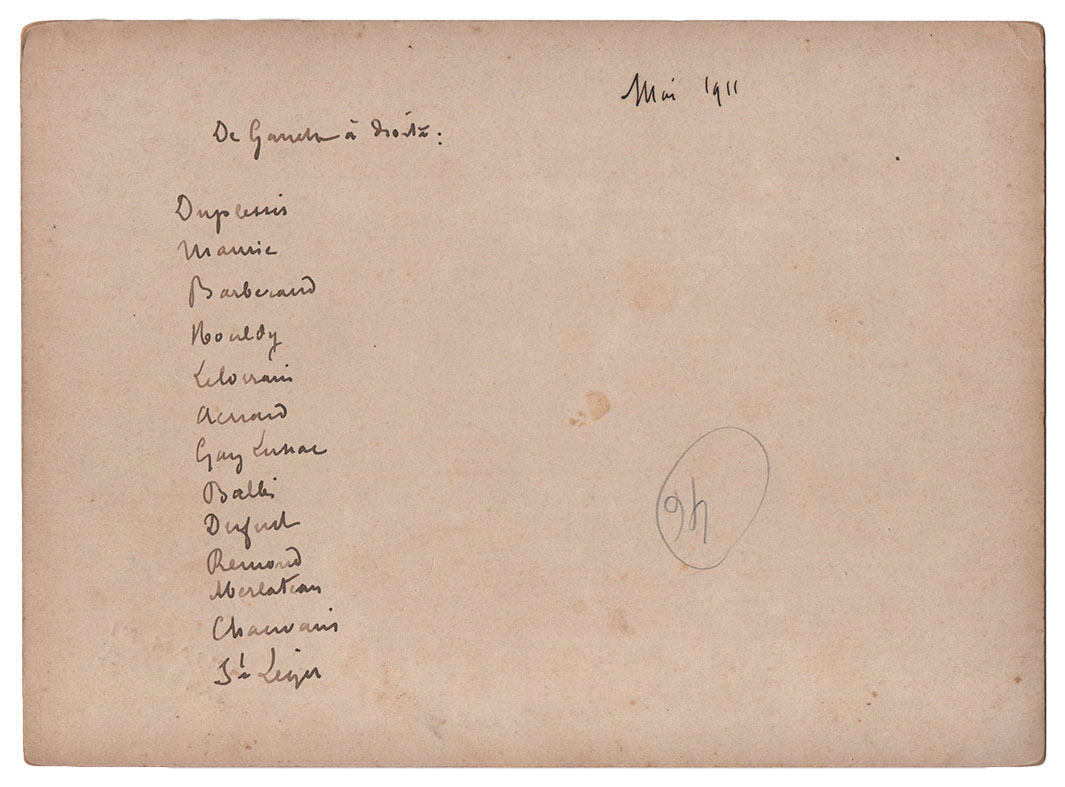 Mai 1911
De Gauche à droite :
Duplessis
Maurie
Barberaud
Houldy
Leloirain
Acnard
Gay Lussac
Balbi
Dufust
Remond
Merlateau
Chauvain
St Léger
46